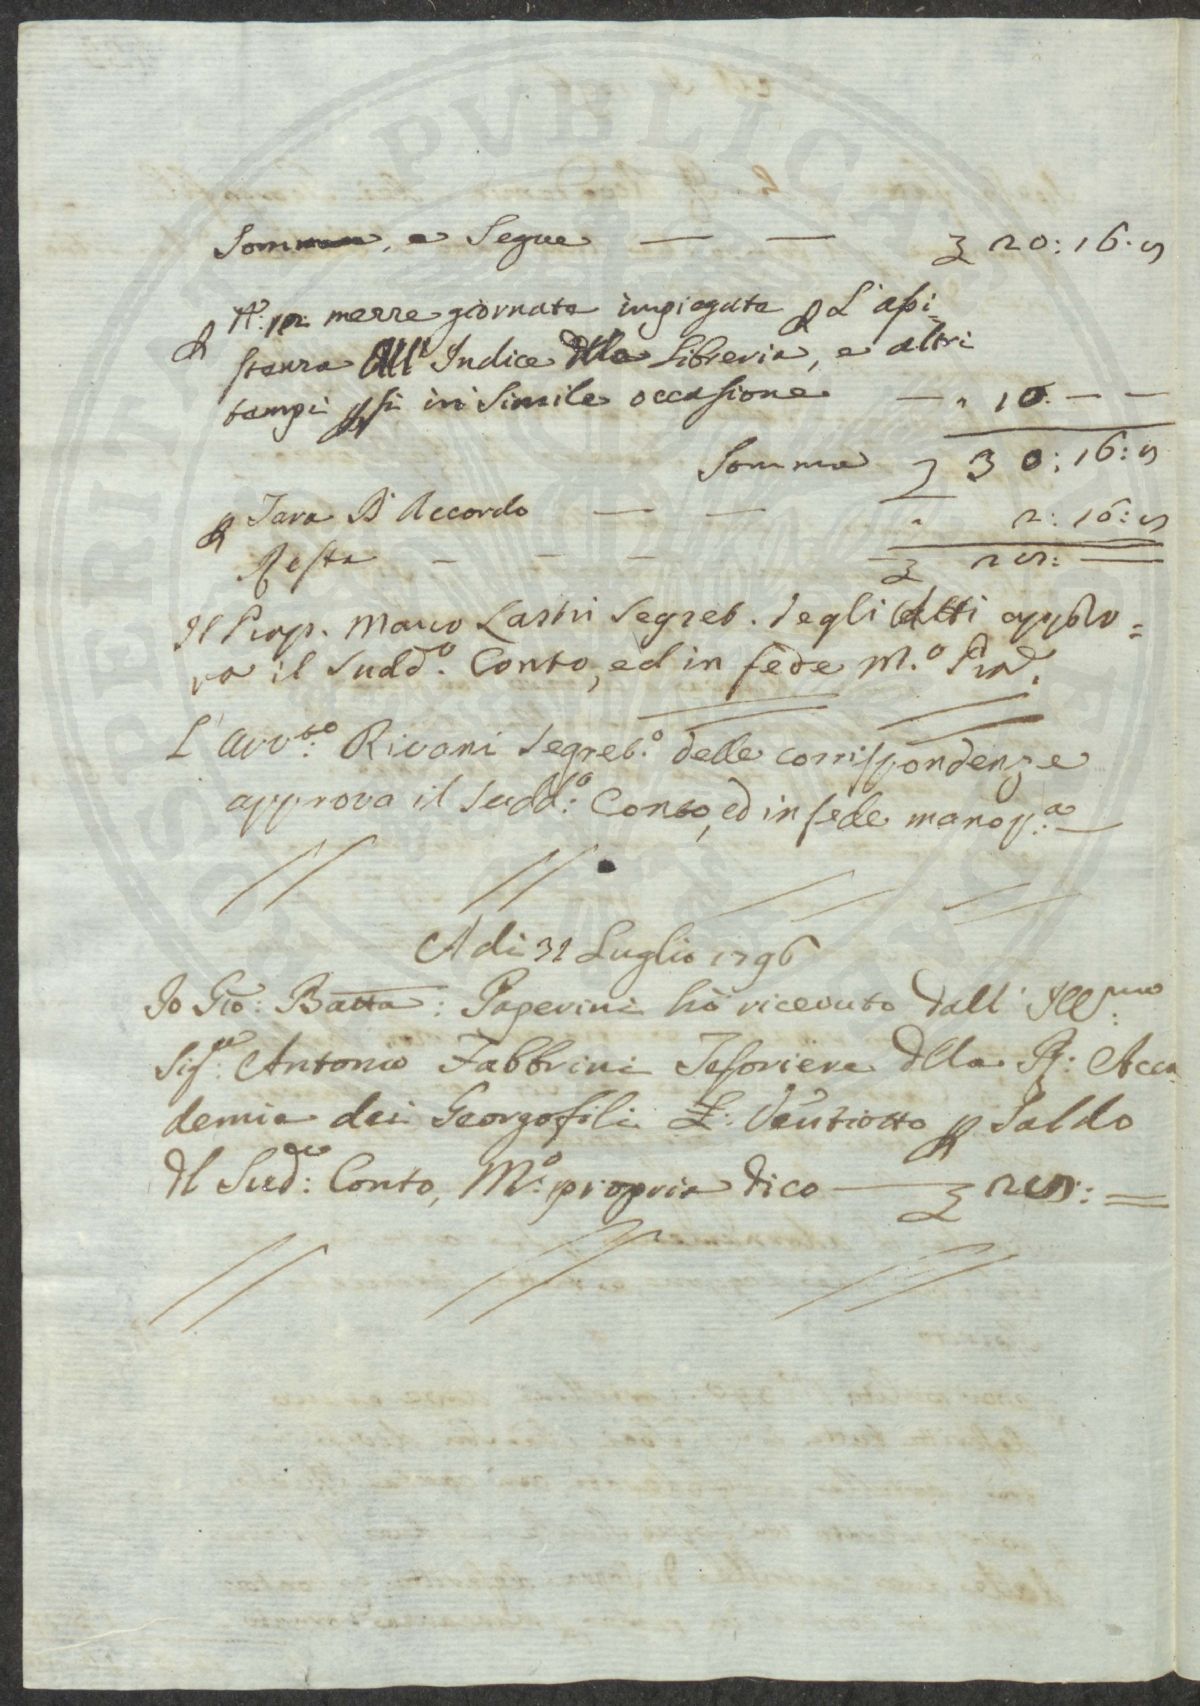 Somma, e Segue — — £ 20: 16. 8
p N.° 12: mezze giornate impiegate p L'assi=
stenza All' Indice della Libreria, e altri
tempi persi in Simile occasione — " 10. — —
Somma £ 30: 16: 8
p Tara D' Accordo — — " 2: 16: 8
Resta — — — £ 28: —
Il Prop. Marco Lastri Segret. degli Atti appro=
va il Sudd.° Conto, ed in fede M.° Pria.
L' Avv.to Rivani Segret.° delle corrispondenze
approva il Sudd.° Conto, ed in fede manop.a —
A di 31 Luglio 1796
Io Gio: Batta: Paperini hò ricevuto dall' Ill.mo
Sig.re Antonio Fabbrini Tesoriere della R: Acca
demia dei Georgofili £: Ventiotto p Saldo
del Sud.o Conto, M.° propria dico — £ 28: =
PVBLICA